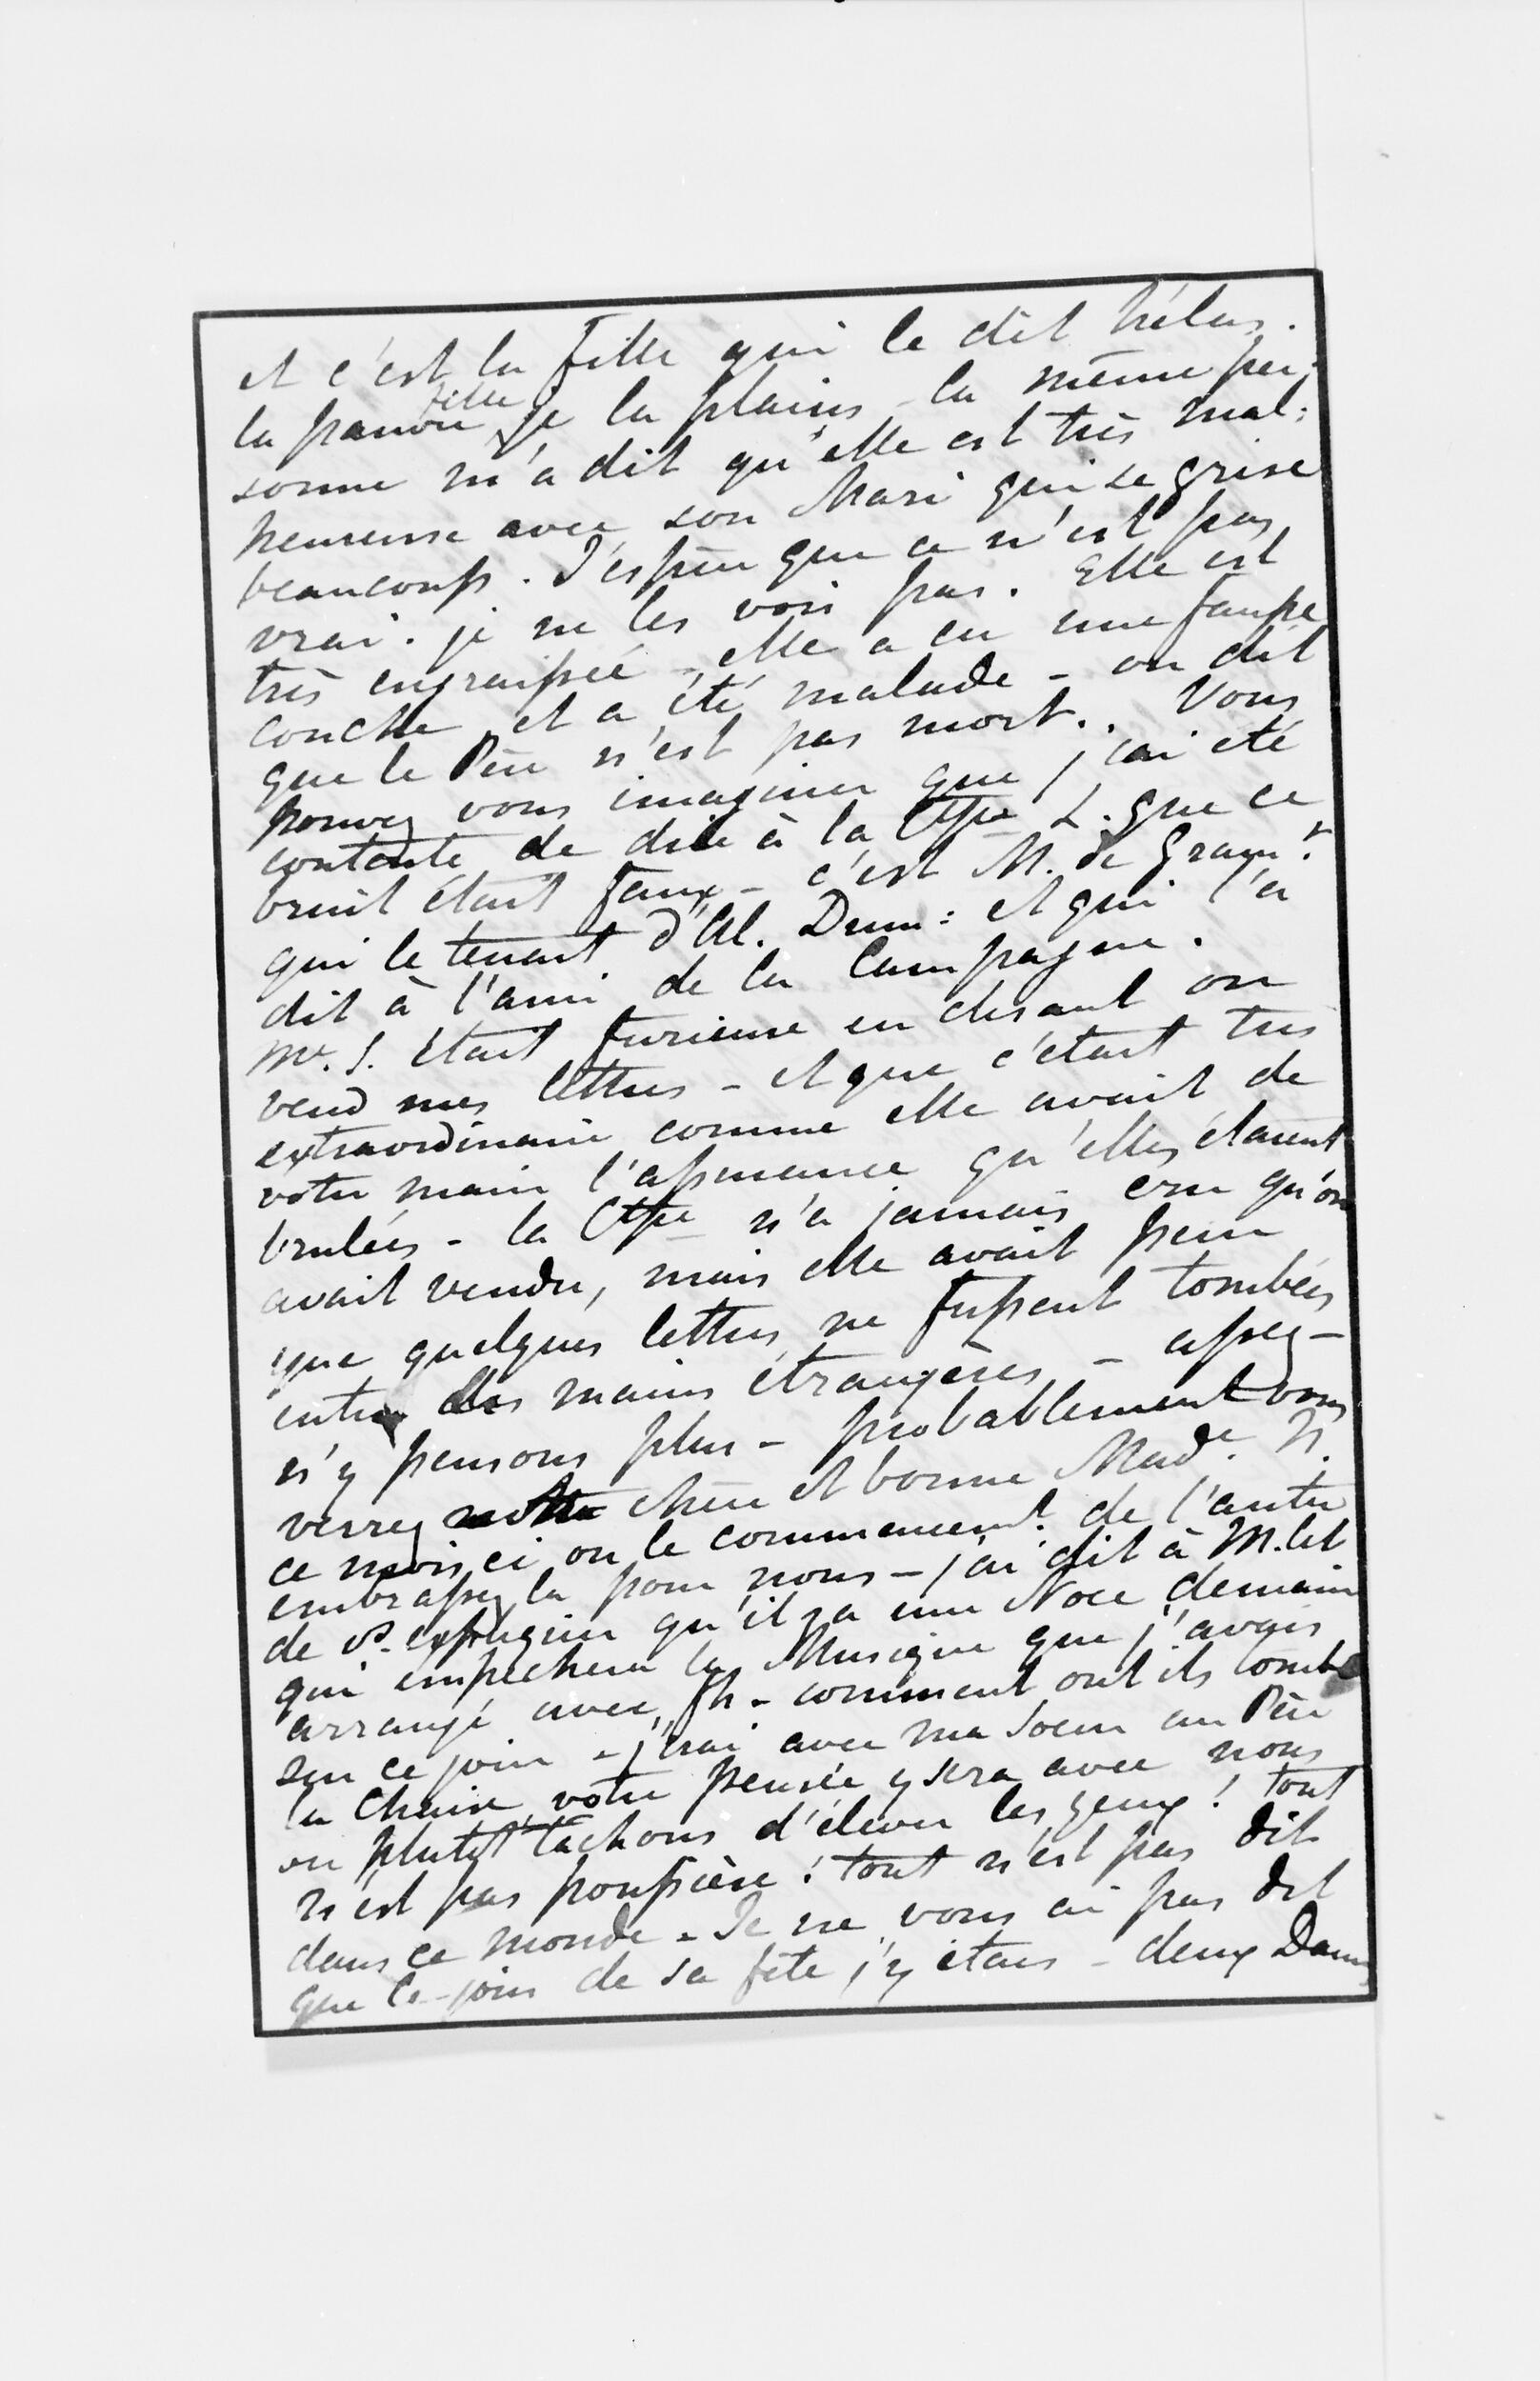 et c'est la fille qui le dit hélas.
la pauvre fille je la plains - la même per:
sonne m'a dit qu'elle est très mal:
heureuse avec son Mari qui se grise
beaucoup. J'espère que ce n'est pas
vrai. je ne les vois pas. Elle est
très engraissée - elle a eu une fausse
couche et a été malade - on dit
que le Père n'est pas mort.. Vous
pouvez vous imaginer que j'ai été
contente de dire à la Ctsse L. que ce
bruit était faux - c'est M. de Gram:t
qui le tenait d'Al. Dum: et qui l'a
dit à l'ami de la Campagne.
Me. S. était furieuse en disant on
vend mes lettres - et que c'était très
extraordinaire comme elle avait de
votre main l'assurance qu'elles étaient
brulées - la Ctsse n'a jamais cru qu'on
avait vendu, mais elle avait peur
que quelques lettres ne fussent tombées
entre des mains étrangères - assez -
n'y pensons plus - probablement vous
verrez notre chère et bonne Made. N.
ce mois ci ou le commencemt. de l'autre
embrassez la pour nous - j'ai dit à M. let
de qu'il y a une Noce demain
qui empêchera la Musique que j'avais
arrangé avec - comment ont ils tombé
sur ce jour - j'irai avec ma Soeur au Père
la Chaise, votre pensée y sera avec nous
ou plutôt tâchons d'élever les yeux! tout
n'est pas poussière! tout n'est pas dit
dans ce monde - Je ne vous ai pas dit
que le jour de sa fête j'y étais - deux Dames